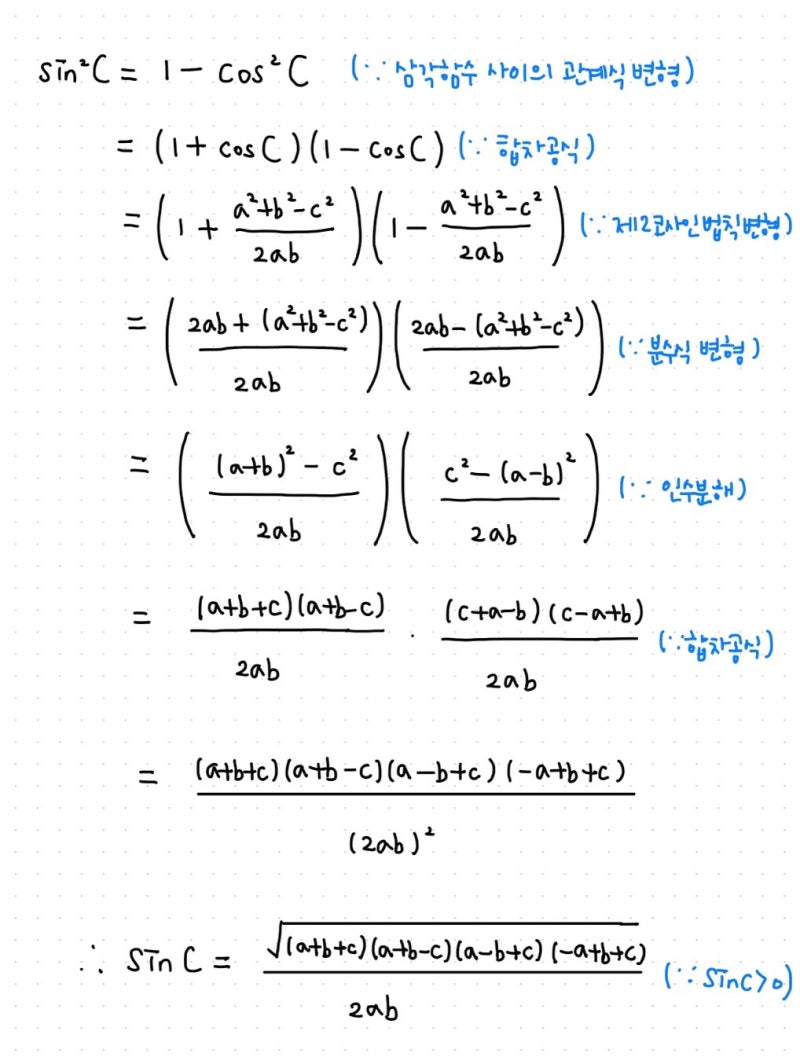 sin²C = 1 - cos²C (∵ 삼각함수 사이의 관계식 변형)
= (1 + cosC)(1 - cosC) (∵ 합차공식)
= (1 + (a²+b²-c²)/2ab)(1 - (a²+b²-c²)/2ab) (∵ 제2코사인법칙변형)
= ((2ab + (a²+b²-c²))/2ab)((2ab - (a²+b²-c²))/2ab) (∵ 분수식 변형)
= (((a+b)² - c²)/2ab)((c² - (a-b)²)/2ab) (∵ 인수분해)
= (a+b+c)(a+b-c)/2ab · (c+a-b)(c-a+b)/2ab (∵ 합차공식)
= (a+b+c)(a+b-c)(a-b+c)(-a+b+c)/(2ab)²
∴ sinC = √((a+b+c)(a+b-c)(a-b+c)(-a+b+c))/2ab (∵ sinC>0)